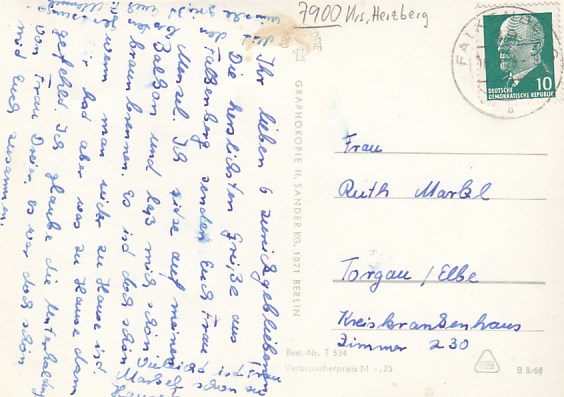 7900 Krs. Herzberg
FALK
DEUTSCHE
DEMOKRATISCHE REPUBLIK
10
Ihr lieben 6 zurückgebliebenen
Die herzlichsten Grüße aus
Falkenberg sendet Euch Frau
Mensel. Ich sitze auf meinem
Balkon und laß mich schön
braunbrennen. Es ist doch schön
wenn man wieder zu Hause ist.
hat aber was zu Hause dann
gefehlt. Ich glaube die Unterhaltung
von Frau es war doch schön
mit Euch zusammen.
Vielleicht ist Frau
Markel schon zu
GRAPHOKOPIE H. SANDER KG, 1071 BERLIN
Frau
Ruth Markl
Torgau/Elbe
Kreiskrankenhaus
Zimmer 230
Best.-Nr. T 534
Verbraucherpreis M -,25
B 8/68